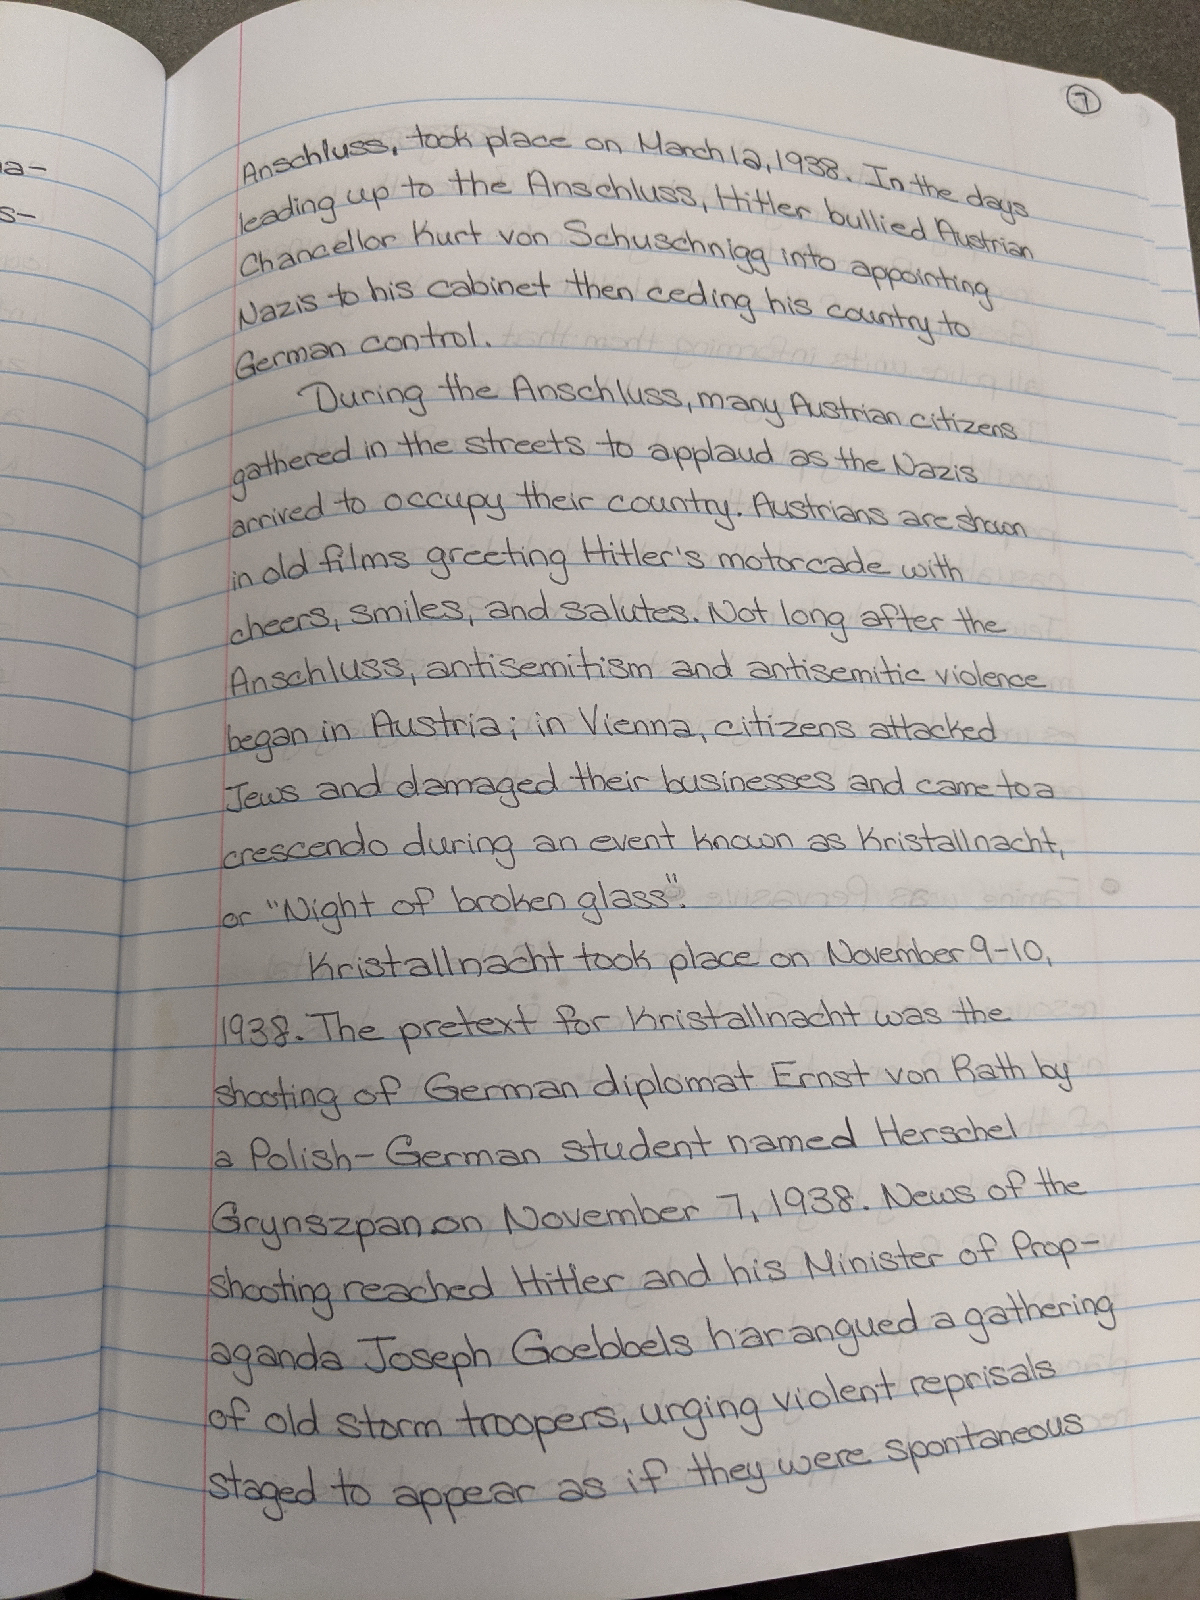 7
a-
s-
Anschluss, took place on March 12, 1938. In the days
leading up to the Anschluss, Hitler bullied Austrian
Chancellor Kurt von Schuschnigg into appointing
Nazis to his cabinet then ceding his country to
German control.
During the Anschluss, many Austrian citizens
gathered in the streets to applaud as the Nazis
arrived to occupy their country. Austrians are shown
in old films greeting Hitler's motorcade with
cheers, smiles, and salutes. Not long after the
Anschluss, antisemitism and antisemitic violence
began in Austria; in Vienna, citizens attacked
Jews and damaged their businesses and came to a
crescendo during an event known as Kristallnacht,
or "Night of broken glass".
Kristallnacht took place on November 9-10,
1938. The pretext for Kristallnacht was the
shooting of German diplomat Ernst von Rath by
a Polish-German student named Herschel
Grynszpan on November 7, 1938. News of the
shooting reached Hitler and his Minister of Prop-
aganda Joseph Goebbels harangued a gathering
of old storm troopers, urging violent reprisals
staged to appear as if they were spontaneous